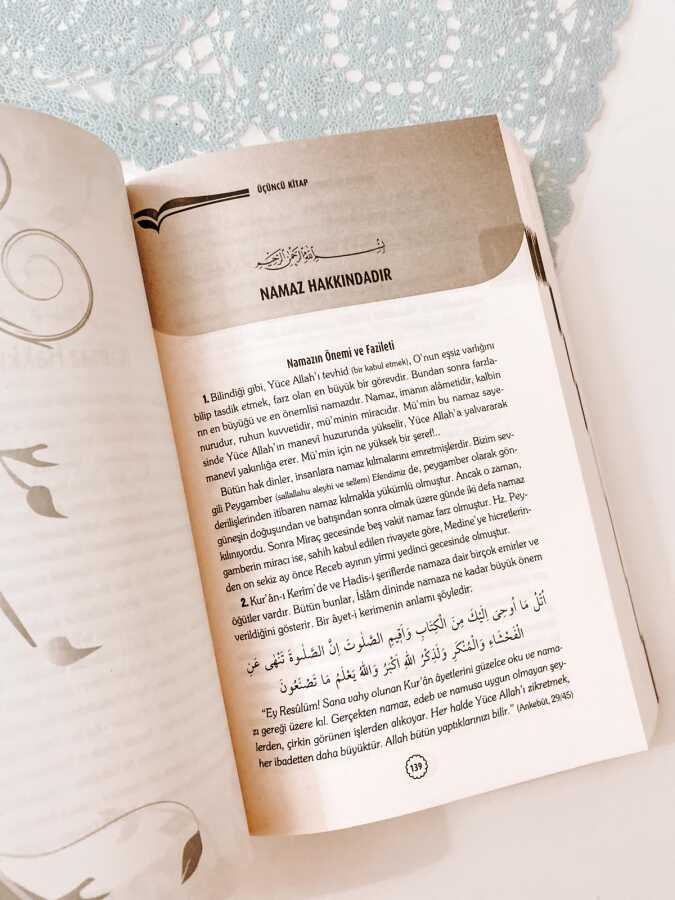 ÜÇÜNCÜ KİTAP
بِسْمِ اللهِ الرَّحْمٰنِ الرَّحِيمِ
NAMAZ HAKKINDADIR
Namazın Önemi ve Fazileti
1. Bilindiği gibi, Yüce Allah'ı tevhid (bir kabul etmek), O'nun eşsiz varlığını
bilip tasdik etmek, farz olan en büyük bir görevdir. Bundan sonra farzla-
rın en büyüğü ve en önemlisi namazdır. Namaz, imanın alâmetidir, kalbin
nurudur, ruhun kuvvetidir, mü'minin miracıdır. Mü'min bu namaz saye-
sinde Yüce Allah'ın manevî huzurunda yükselir, Yüce Allah'a yalvararak
manevî yakınlığa erer. Mü'min için ne yüksek bir şeref!...
Bütün hak dinler, insanlara namaz kılmalarını emretmişlerdir. Bizim sev-
gili Peygamber (sallallahu aleyhi ve sellem) Efendimiz de, peygamber olarak gön-
derilişlerinden itibaren namaz kılmakla yükümlü olmuştur. Ancak o zaman,
güneşin doğuşundan ve batışından sonra olmak üzere günde iki defa namaz
kılınıyordu. Sonra Miraç gecesinde beş vakit namaz farz olmuştur. Hz. Pey-
gamberin miracı ise, sahih kabul edilen rivayete göre, Medine'ye hicretlerin-
den on sekiz ay önce Receb ayının yirmi yedinci gecesinde olmuştur.
2. Kur'ân-ı Kerîm'de ve Hadis-i şeriflerde namaza dair birçok emirler ve
öğütler vardır. Bütün bunlar, İslâm dininde namaza ne kadar büyük önem
verildiğini gösterir. Bir âyet-i kerimenin anlamı şöyledir:
اُتْلُ مَا اُوحِىَ اِلَيْكَ مِنَ الْكِتَابِ وَاَقِيمِ الصَّلٰوتَ اِنَّ الصَّلٰوةَ تَنْهٰى عَنِ
الْفَحْشَاءِ وَالْمُنْكَرِ وَلَذِكْرُ اللهِ اَكْبَرُ وَاللهُ يَعْلَمُ مَا تَصْنَعُونَ
"Ey Resûlüm! Sana vahy olunan Kur'ân âyetlerini güzelce oku ve nama-
zı gereği üzere kıl. Gerçekten namaz, edeb ve namusa uygun olmayan şey-
lerden, çirkin görünen işlerden alıkoyar. Her halde Yüce Allah'ı zikretmek,
her ibadetten daha büyüktür. Allah bütün yaptıklarınızı bilir." (Ankebût, 29/45)
139